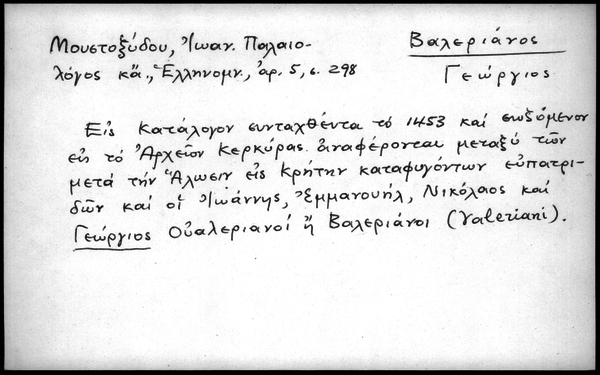 Μουστοξύδου, Ἰωαν. Παλαιο-
λόγος κἄ., Ἑλληνομν., ἀρ. 5, σ. 298
Βαλεριάνος
Γεώργιος
Εἰς κατάλογον συνταχθέντα τό 1453 καί σωζόμενον
εἰς τό Ἀρχεῖον Κερκύρας ἀναφέρονται μεταξύ τῶν
μετά τήν Ἅλωσιν εἰς Κρήτην καταφυγόντων εὐπατρι-
δῶν καί οἱ Ἰωάννης, Ἐμμανουήλ, Νικόλαος καί
Γεώργιος Οὐαλεριανοί ἤ Βαλεριάνοι (Valeriani).